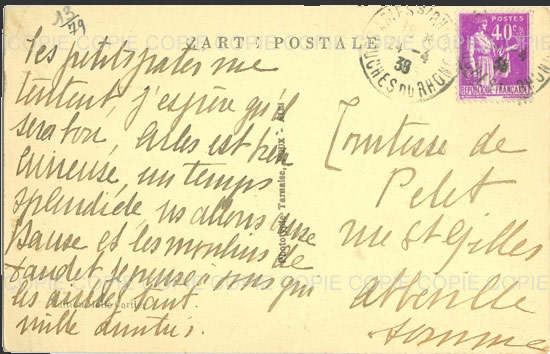 13/79
CARTE POSTALE
Les petits pates me
tentent, j'espère qu'il
sera bon, Arles est bien
curieuse, un temps
splendide, ns allons
et les moulins de
Daudet, je pense a vous qui
les
mille amitiés.
Phototypie Tarnaise,
BOUCHES DU RHONE
38
POSTES
40c
REPUBLIQUE FRANÇAISE
Comtesse de
Pelet
rue St Gilles
Abbeville
Somme
COPIE COPIE COPIE COPIE COPIE COPIE COPIE